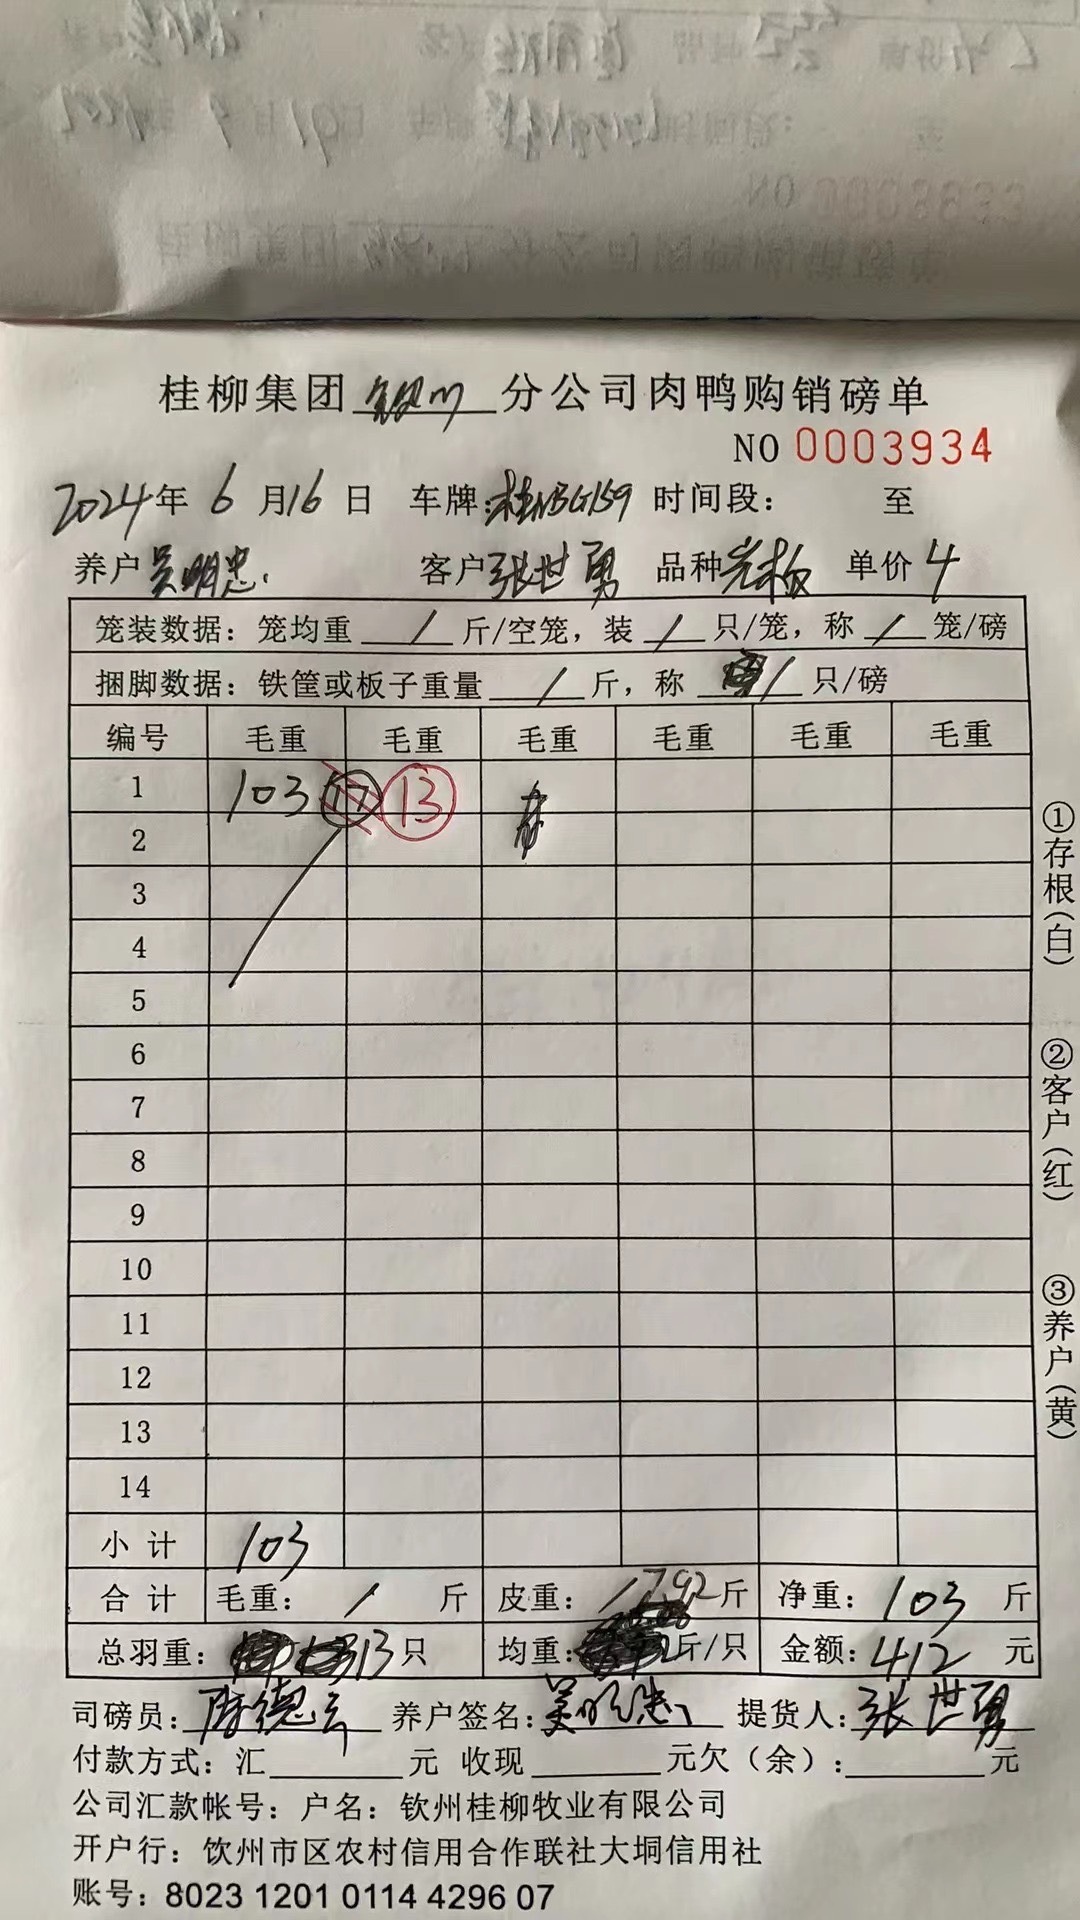 桂柳集团 钦州 分公司肉鸭购销磅单
NO 0003934
2024年 6月16日 车牌: 时间段: 至
养户 吴明忠 客户 张世勇 品种 单价 4
笼装数据: 笼均重 / 斤/空笼, 装 / 只/笼, 称 / 笼/磅
捆脚数据: 铁筐或板子重量 / 斤, 称 / 只/磅
编号 毛重 毛重 毛重 毛重 毛重 毛重
1 103 17 13
2
3
4
5
6
7
8
9
10
11
12
13
14
小计 103
合计 毛重: / 斤 皮重: / 斤 净重: 103 斤
总羽重: 13只 均重: 7.92 斤/只 金额: 412 元
司磅员: 养户签名: 吴明忠 提货人: 张世勇
付款方式: 汇 元 收现 元欠(余): 元
公司汇款帐号: 户名: 钦州桂柳牧业有限公司
开户行: 饮州市区农村信用合作联社大垌信用社
账号: 8023 1201 0114 4296 07
①存根(白)
②客户(红)
③养户(黄)